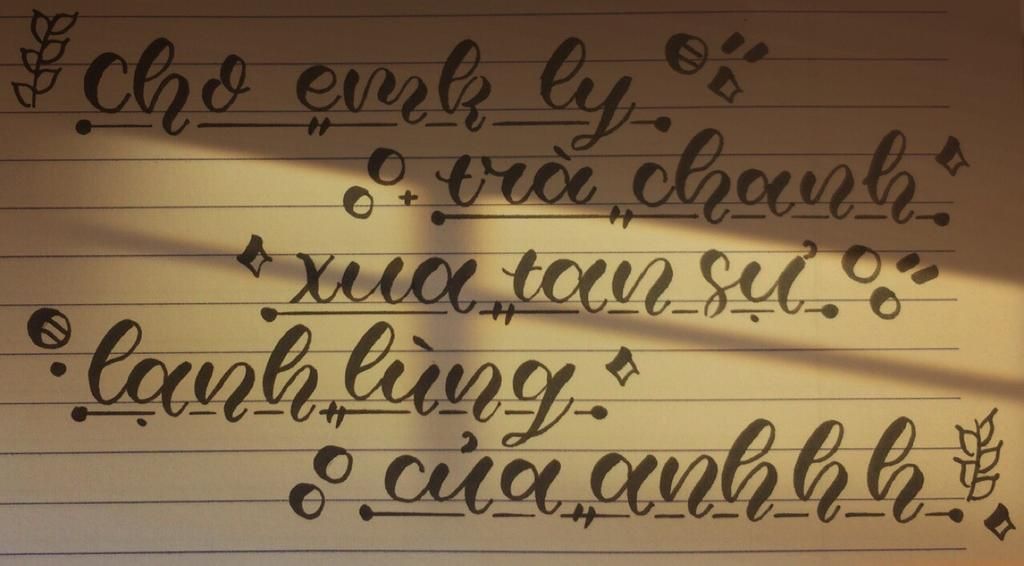 cho emk ly
trà chanh
xua tan sự
lạnh lùng
của anhhh